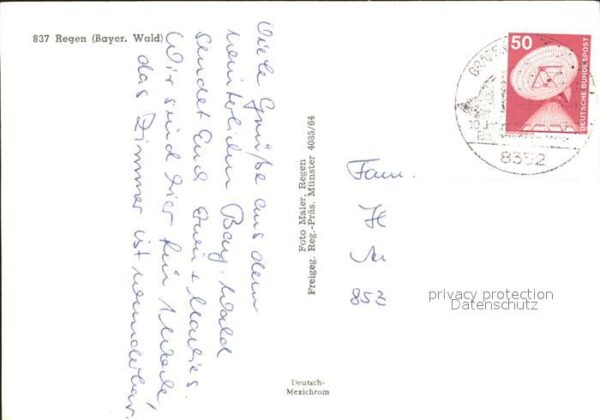 837 Regen (Bayer. Wald)
Viele Grüße aus dem
winterlichen Bay. Wald
sendet Euch
Wir sind hier für 1 Woche,
das Zimmer ist wunderbar.
Foto Maier, Regen
Freigeg. Reg.-Präs. Münster 4085/64
Deutsch-
Mexichrom
50
DEUTSCHE BUNDESPOST
8352
Fam.
privacy protection
Datenschutz